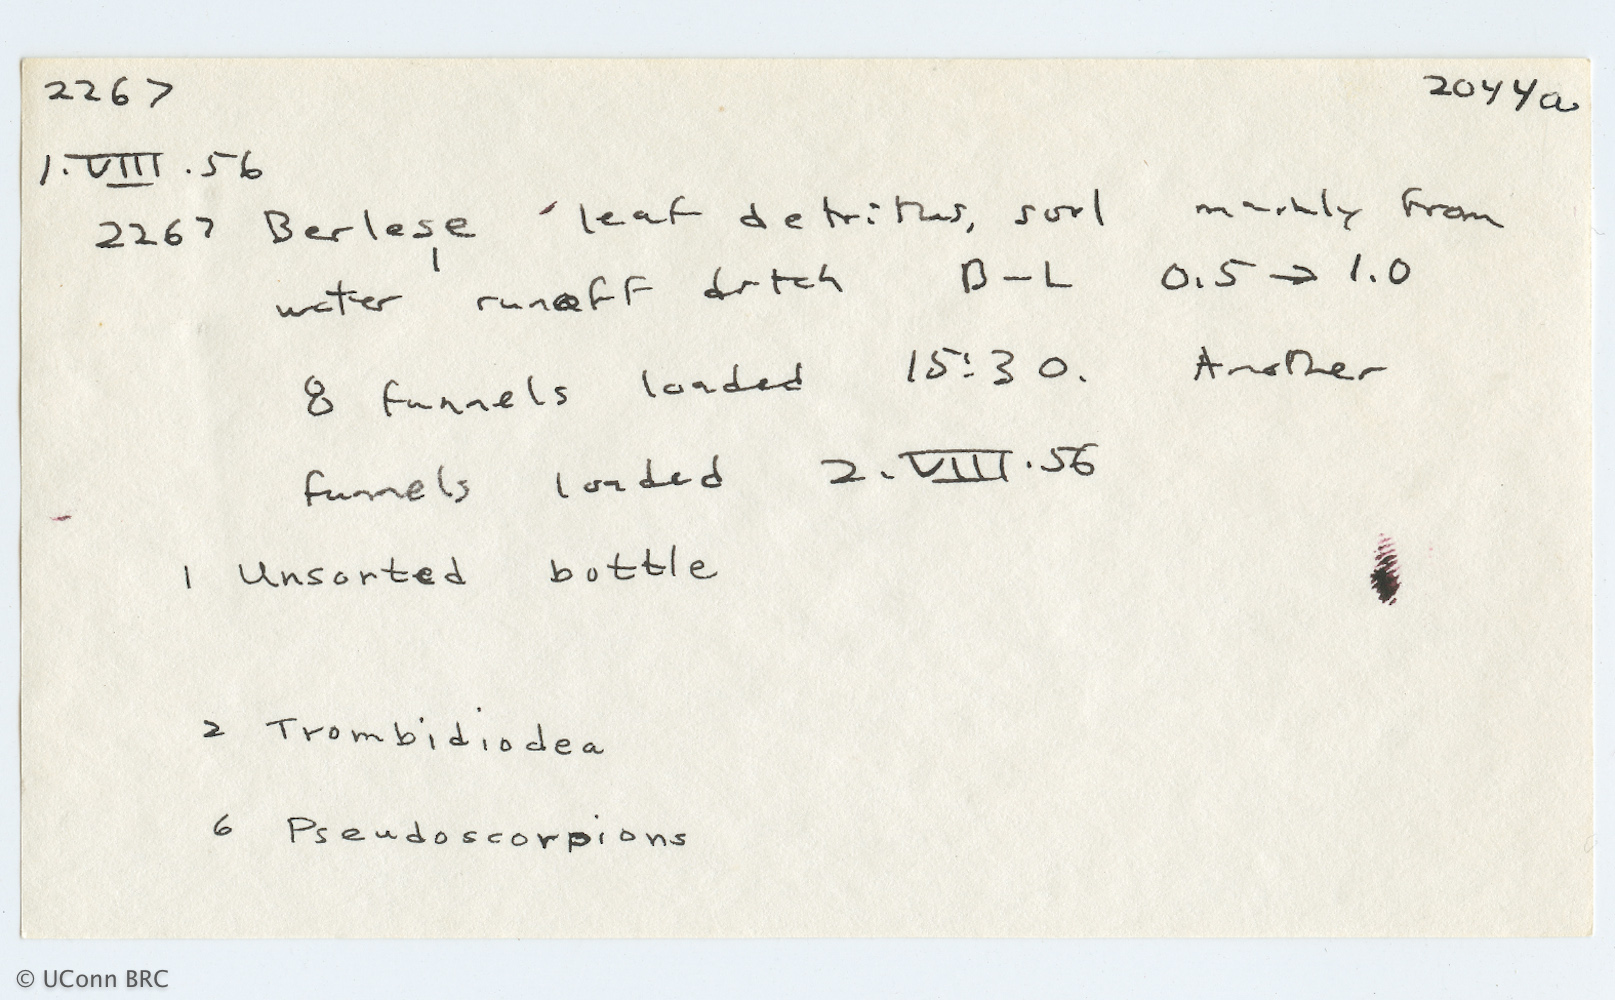 2267 2044a
1.VIII.56
2267 Berlese leaf detritus, soil mainly from
water runoff ditch B-L 0.5 → 1.0
8 funnels loaded 15:30. Another
funnels loaded 2.VIII.56
1 Unsorted bottle
2 Trombidiodea
6 Pseudoscorpions
© UConn BRC